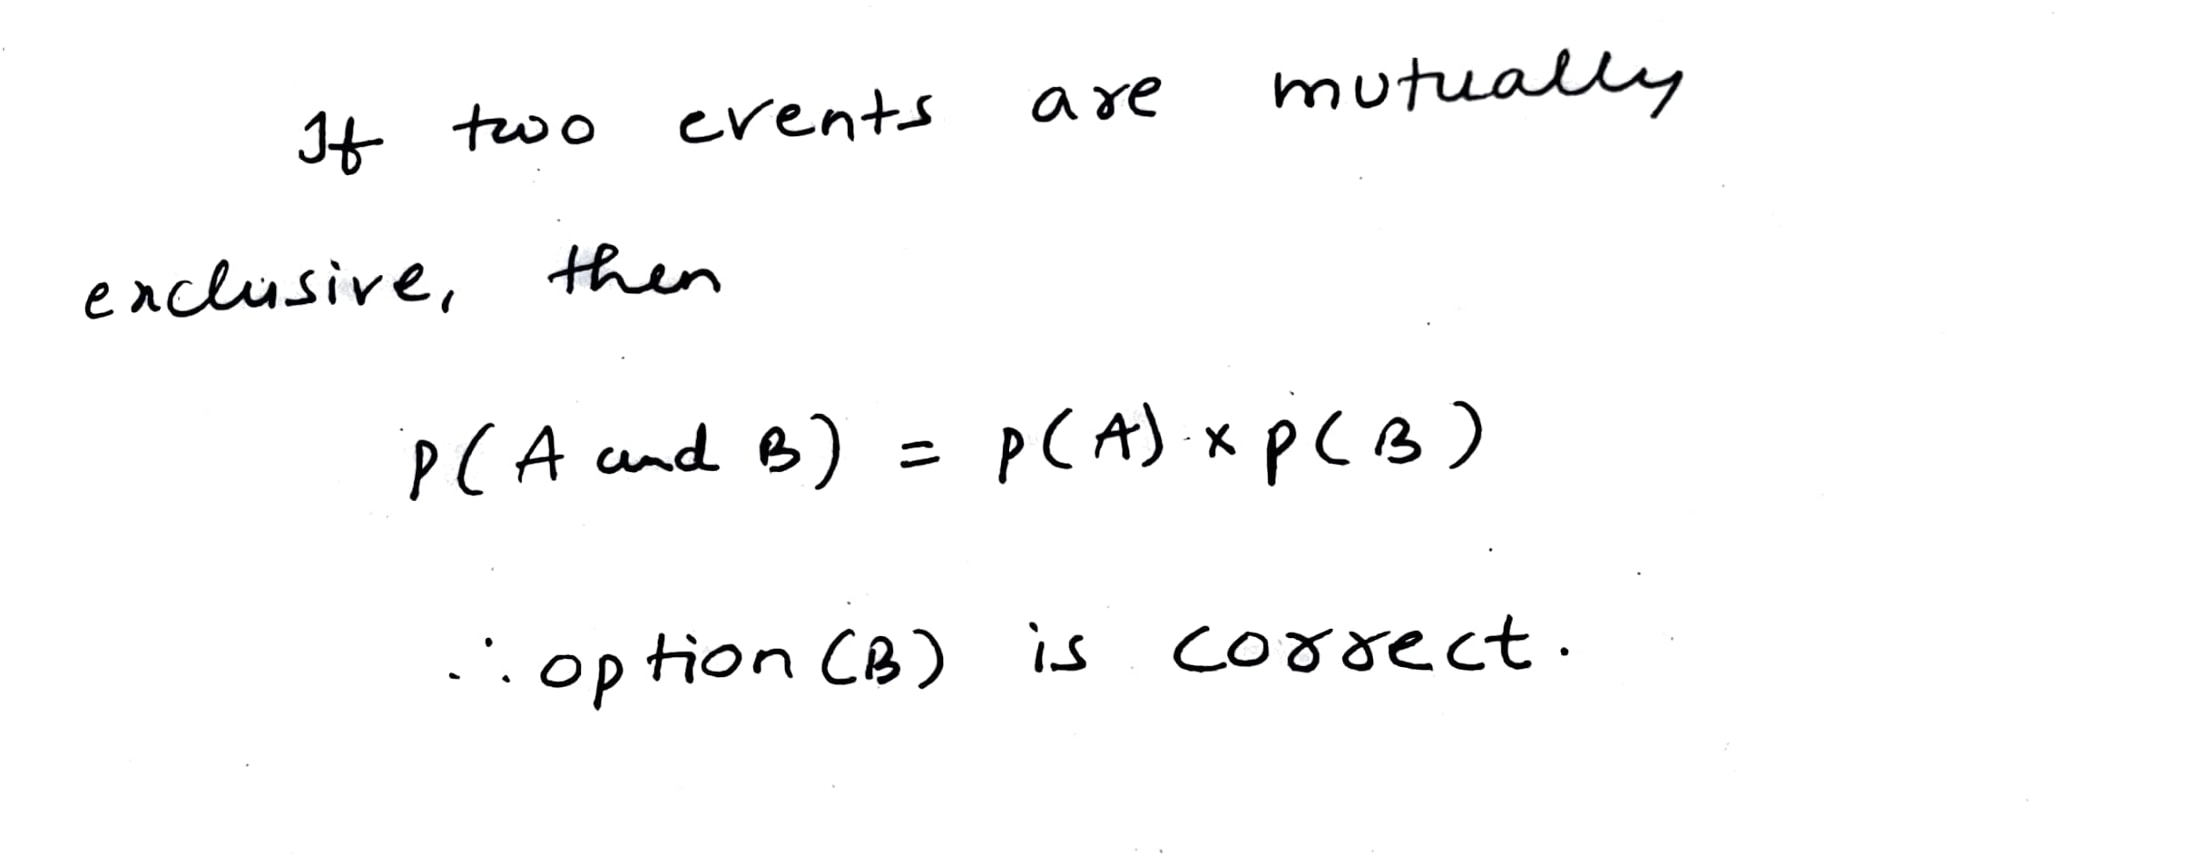 If two events are mutually
exclusive, then
P(A and B) = P(A) x P(B)
∴ option (B) is correct.